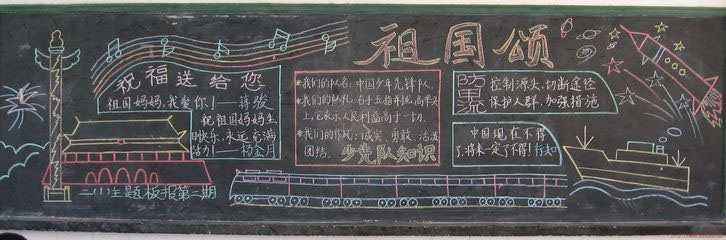 祖国颂
祝福送给您
祖国妈妈,我爱你!——蒋骏
祝祖国妈妈生
日快乐,永远充满
活力!——杨金月
二(1)主题板报第二期
★我们的队名:中国少年先锋队。
★我们的队礼:右手五指并拢,高举头
上,它表示人民利益高于一切。
★我们的作风:诚实、勇敢、活泼、
团结。
少先队知识
防甲流
控制源头、切断途径
保护人群、加强措施
中国现在不得
了,将来一定了不得!